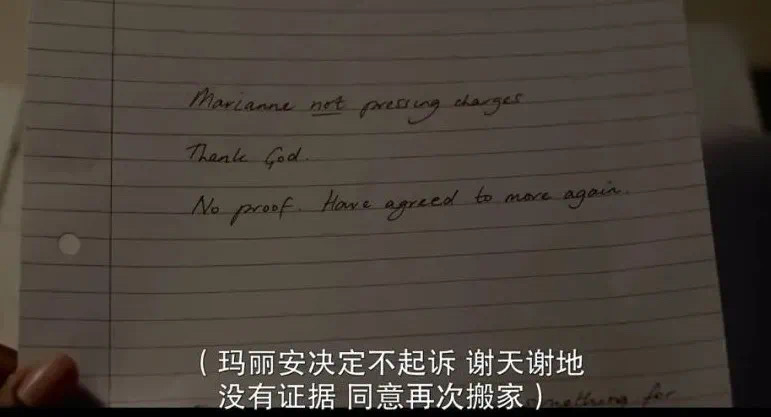 Marianne not pressing charges
Thank God.
No proof. Have agreed to move again.
(玛丽安决定不起诉 谢天谢地
没有证据 同意再次搬家)
something for